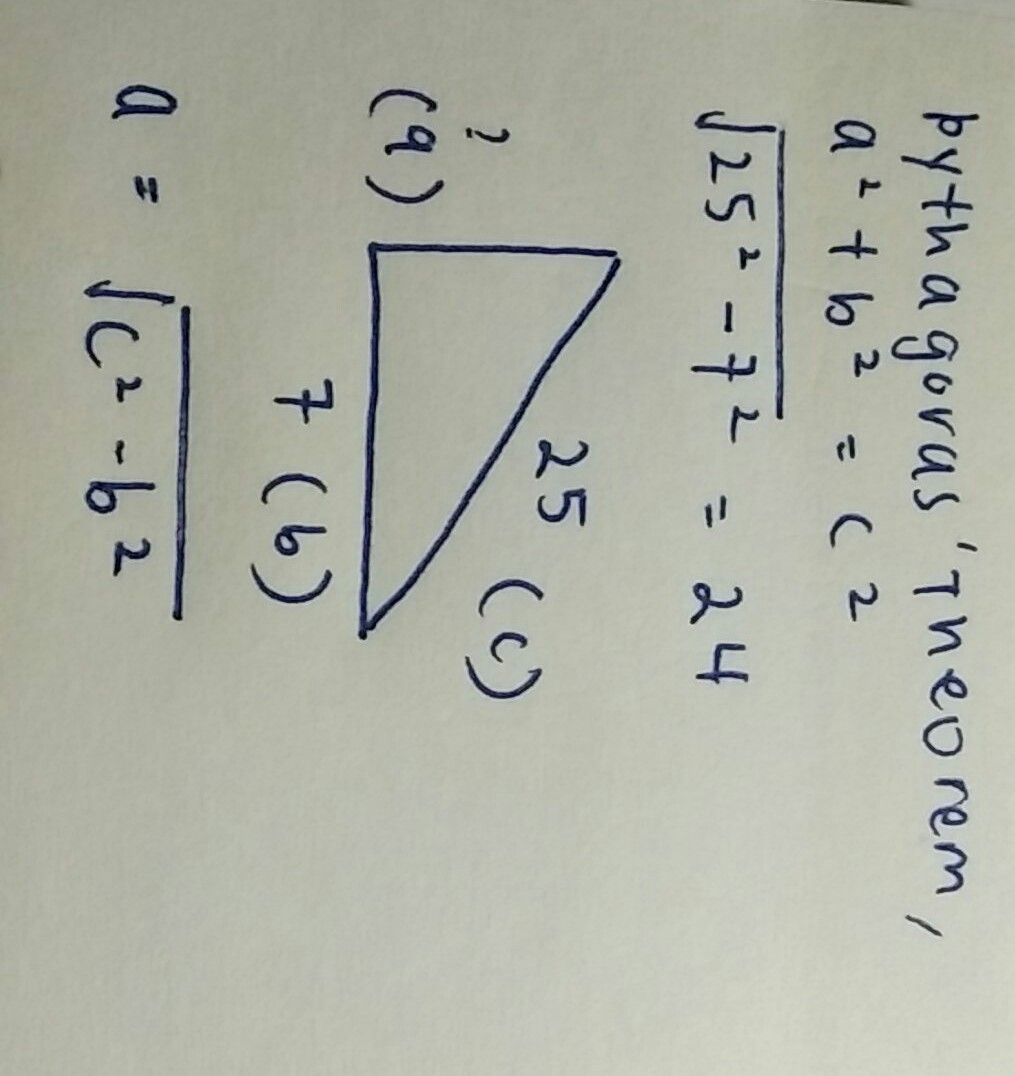 pythagoras' Theorem,
a² + b² = c²
√25² - 7² = 24
25 (c)
?
(a)
7 (b)
a = √c² - b²